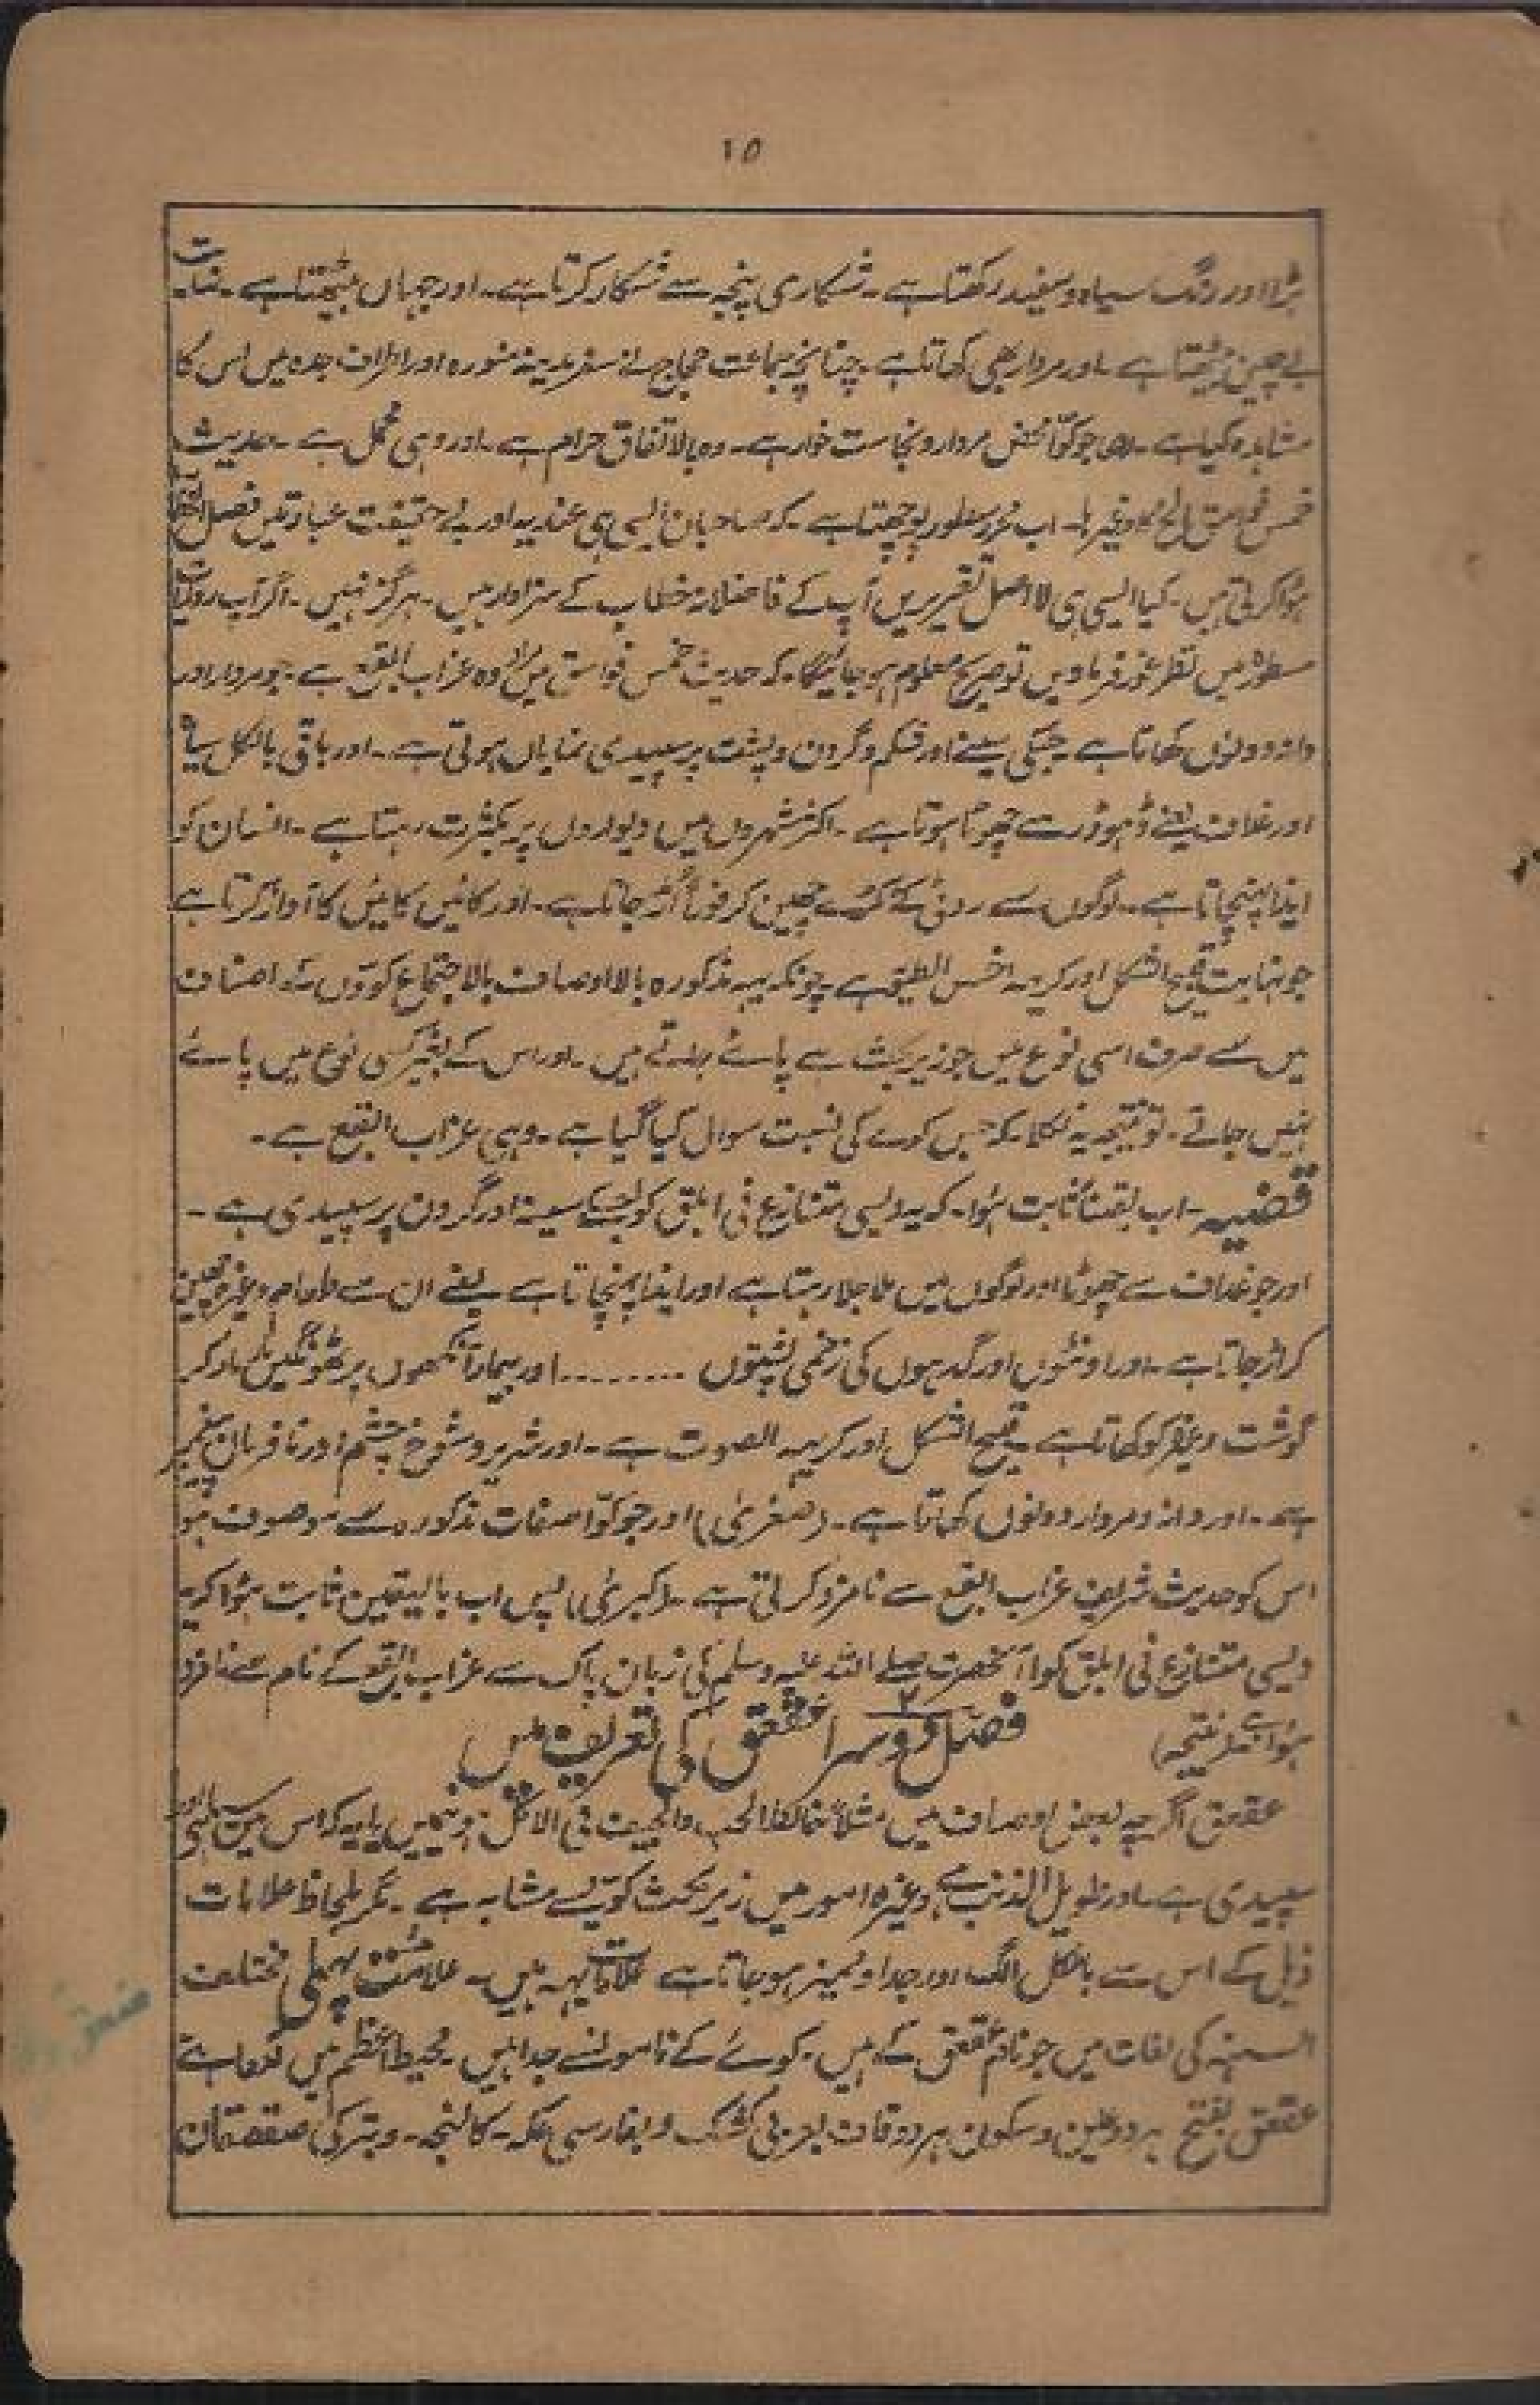 ١٥
بڑا اور رنگ سیاہ و سفید رکھتا ہے۔ شکاری پنجہ سے شکار کرتا ہے۔ اور جہاں بیٹھتا ہے۔ نہایت
بے چین بیٹھتا ہے۔ اور مردار بھی کھاتا ہے۔ چنانچہ جماعت حجاج نے سفر مدینہ منورہ اور اطراف جدہ میں اس کا
مشاہدہ کیا ہے۔ جو کوّا محض مردار و نجاست خوار ہے۔ وہ بالاتفاق حرام ہے۔ اور وہی محمل ہے۔ حدیث
خمس فواسق الخ وغیرہا۔ اب سطور پوچھتا ہے۔ کہ صاحبان ایسی ہی عندیہ اور بے حقیقت عبارتیں فصل الخطاب
ہؤا کرتی ہیں۔ کیا ایسی ہی لااصل تقریریں آپ کے فاضلانہ خطاب کے سزاوار ہیں۔ ہرگز نہیں۔ اگر آپ روایات
مسطورہ میں نظر غور فرماویں تو صریح معلوم ہو جائیگا۔ کہ حدیث خمس فواسق میں مراد وہ غراب ابقع ہے۔ جو مردار اور
دانہ دونوں کھاتا ہے جسکی سینے اور شکم و گردن و پشت پر سپیدی نمایاں ہوتی ہے۔ اور باقی بالکل سیاہ
اور غداف یعنے ڈہوڈر سے چھوٹا ہوتا ہے۔ اکثر شہروں میں دیواروں پر بکثرت رہتا ہے۔ انسان کو
ایذا پہنچاتا ہے۔ لوگوں سے روٹی کے ٹکڑے چھین کر فوراً اُڑ جاتا ہے۔ اور کائیں کائیں کا آواز کرتا ہے
جو نہایت قبیح الشکل اور کریہہ اخس الطیور ہے۔ چونکہ یہہ مذکورہ بالا اوصاف بالاجتماع کووّں کے اصناف
میں سے صرف اسی نوع میں جو زیر بحث ہے پائے جاتے ہیں۔ اور اس کے بغیر کسی نوع میں پائے
نہیں جاتے۔ تو نتیجہ یہ نکلا۔ کہ جس کوے کی نسبت سوال کیا گیا ہے۔ وہی غراب ابقع ہے۔
قضیہ۔ اب یقیناً ثابت ہؤا۔ کہ یہ دیسی متنازع فی ابلق کوا جسکے سینہ اور گردن پر سپیدی ہے۔
اور جو غداف سے چھوٹا اور لوگوں میں ملا جلا رہتا ہے اور ایذا پہنچاتا ہے یعنے ان سے طعام وغیرہ چھین
کر اڑ جاتا ہے۔ اور اونٹوں اور گدہوں کی زخمی پشتوں ........ اور بیمار آنکھوں پر ٹھونگیں مار کر
گوشت وغیرہ کو کھاتا ہے قبیح الشکل اور کریہہ الصوت ہے۔ اور شریر و شوخ چشم اور نافرمان پیغمبر
ہے۔ اور دانہ و مردار دونوں کھاتا ہے۔ (صغریٰ) اور جو کوّا صفات مذکورہ سے موصوف ہو
اس کو حدیث شریف غراب ابقع سے نامزد کرتی ہے۔ (کبریٰ) پس اب بالیقین ثابت ہؤا کہ یہ
دیسی متنازع فی ابلق کوا آنحضرت صلے اللہ علیہ وسلم کی زبان پاک سے غراب ابقع کے نام سے نامزد
ہؤا ہے (نتیجہ)
فصل دوسرا عقعق کی تعریف میں
عقعق اگرچہ بعض اوصاف میں مثلاً والجیف فی الاکل اس میں سیاہی اور
سپیدی ہے۔ اور طویل الذنب ہے وغیرہ امور میں زیر بحث کوّے سے مشابہ ہے۔ مگر بلحاظ علامات
ذیل کے اس سے بالکل الگ اور جدا و ممیز ہو جاتا ہے علامات یہہ ہیں۔ علامت پہلی مختلف
السنہ کی لغات میں جو نام عقعق کے ہیں۔ کوئے کے ناموں سے جدا ہیں۔ محیط اعظم میں لکھا ہے
عقعق بفتح ہر دو عین و سکون ہر دو قاف بعربی و بفارسی عکہ۔ کالنجہ۔ و بترکی صقصقان